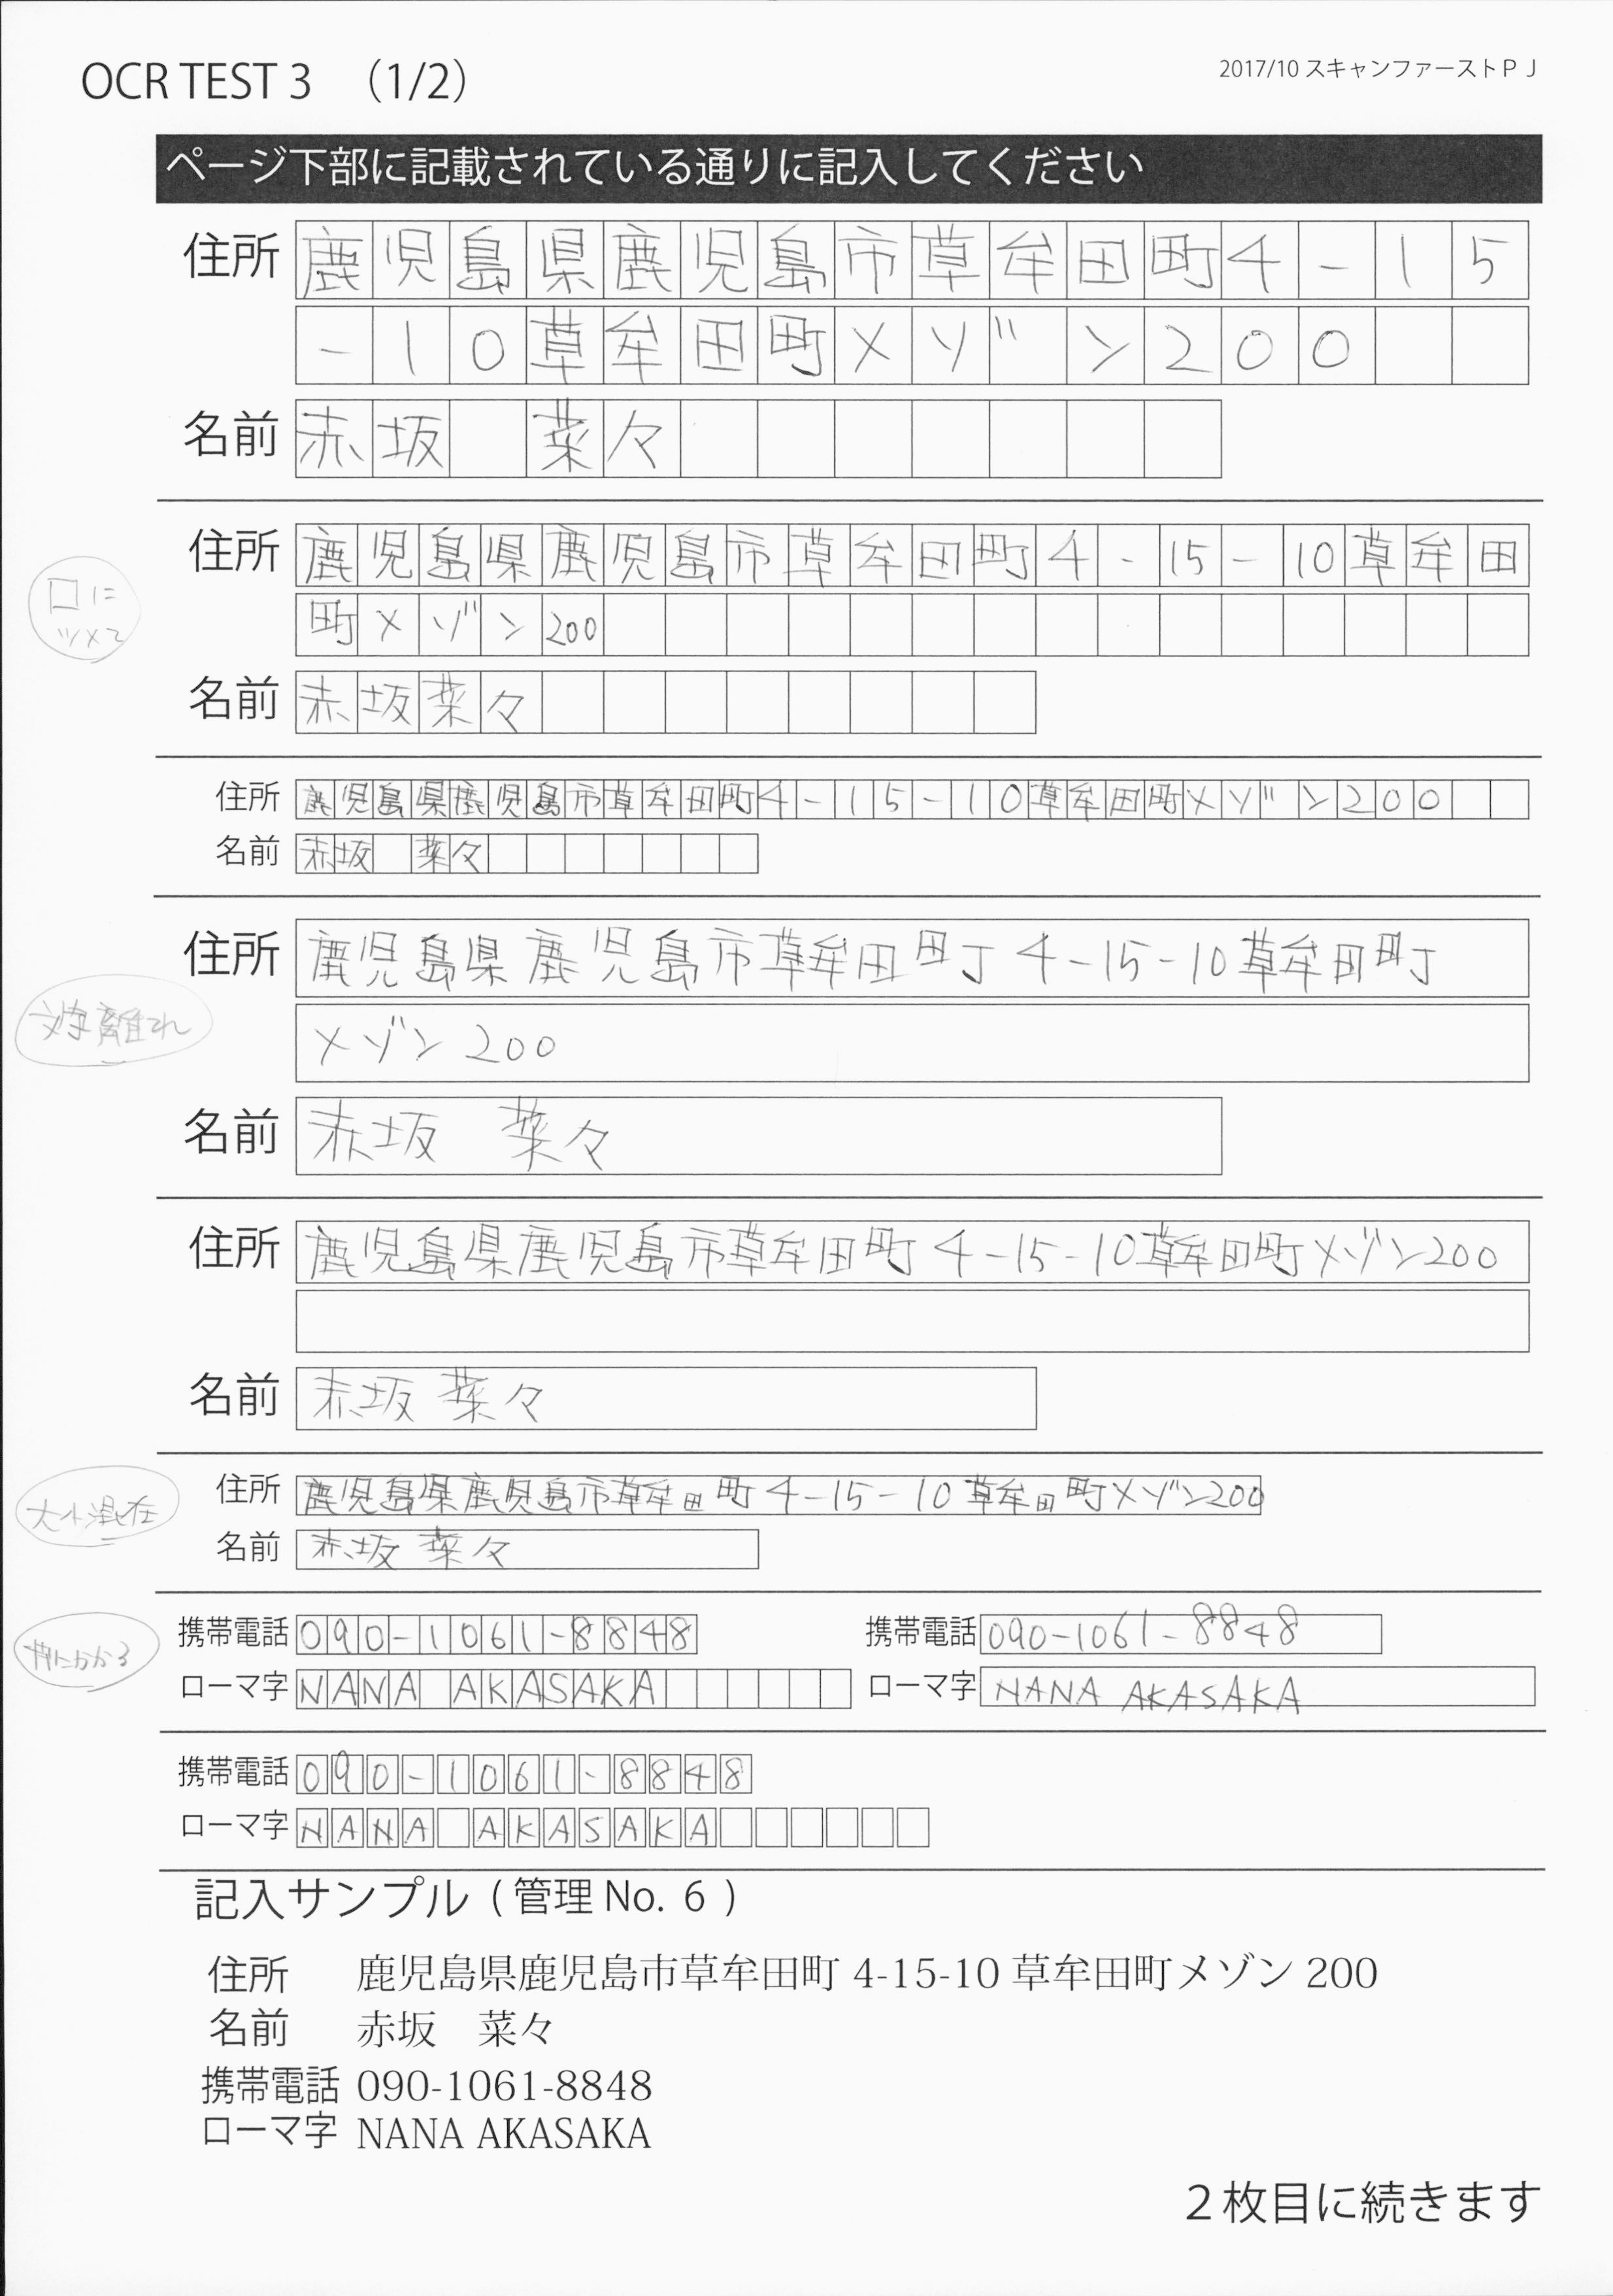 OCR TEST 3 （1/2）
2017/10 スキャンファーストＰＪ
ページ下部に記載されている通りに記入してください
住所 鹿児島県鹿児島市草牟田町4-15
-10草牟田町メゾン200
名前 赤坂 菜々
住所 鹿児島県鹿児島市草牟田町4-15-10草牟田
口に
ツメて
町メゾン200
名前 赤坂菜々
住所 鹿児島県鹿児島市草牟田町4-15-10草牟田町メゾン200
名前 赤坂 菜々
住所 鹿児島県鹿児島市草牟田町4-15-10草牟田町
文字離れ
メゾン200
名前 赤坂 菜々
住所 鹿児島県鹿児島市草牟田町4-15-10草牟田町メゾン200
名前 赤坂 菜々
住所 鹿児島県鹿児島市草牟田町4-15-10草牟田町メゾン200
大小混在
名前 赤坂 菜々
携帯電話 090-1061-8848 携帯電話 090-1061-8848
ローマ字 NANA AKASAKA ローマ字 NANA AKASAKA
携帯電話 090-1061-8848
ローマ字 NANA AKASAKA
記入サンプル（管理No. 6 ）
住所 鹿児島県鹿児島市草牟田町 4-15-10 草牟田町メゾン 200
名前 赤坂 菜々
携帯電話 090-1061-8848
ローマ字 NANA AKASAKA
２枚目に続きます